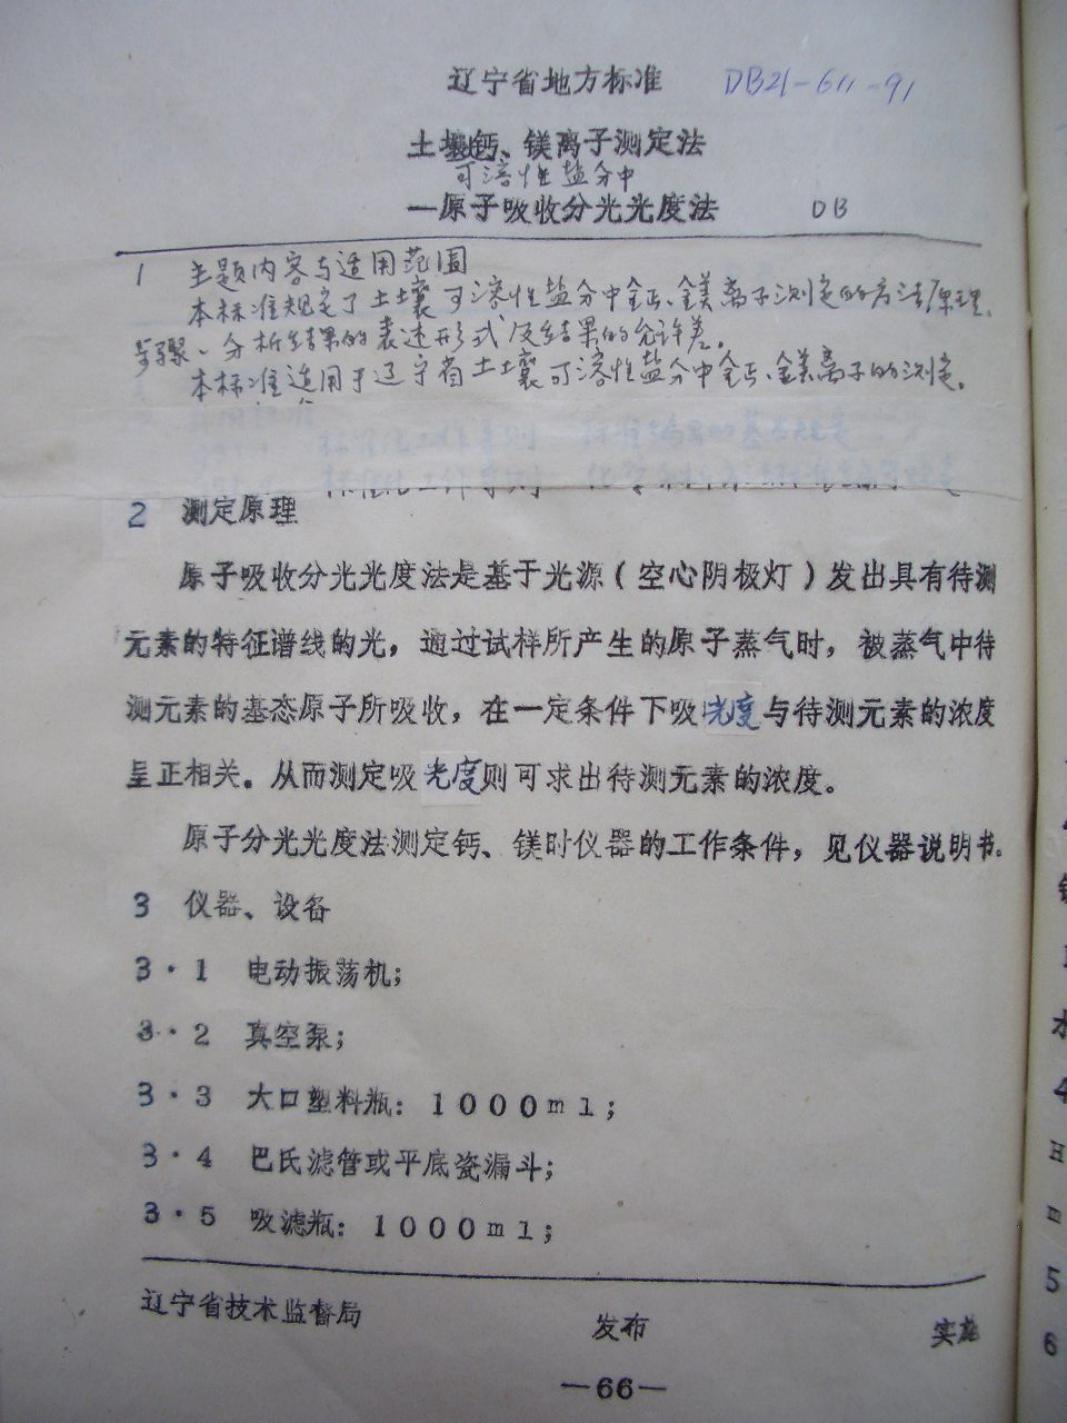 辽宁省地方标准 DB21-611-91
土壤钙、镁离子测定法
可溶性盐分中
—原子吸收分光光度法 DB
1 主题内容与适用范围
本标准规定了土壤可溶性盐分中钙、镁离子测定的方法原理、
步骤、分析结果的表述形式及结果的允许差。
本标准适用于辽宁省土壤可溶性盐分中钙、镁离子的测定。
标准化工作导则 标准编写的基本规定
2 测定原理
原子吸收分光光度法是基于光源(空心阴极灯)发出具有待测
元素的特征谱线的光，通过试样所产生的原子蒸气时，被蒸气中待
测元素的基态原子所吸收，在一定条件下吸光度与待测元素的浓度
呈正相关。从而测定吸光度则可求出待测元素的浓度。
原子分光光度法测定钙、镁时仪器的工作条件，见仪器说明书。
3 仪器、设备
3·1 电动振荡机；
3·2 真空泵；
3·3 大口塑料瓶：1000ml；
3·4 巴氏滤管或平底瓷漏斗；
3·5 吸滤瓶：1000ml；
辽宁省技术监督局 发布 实施
—66—
水
4
H
m
5
6